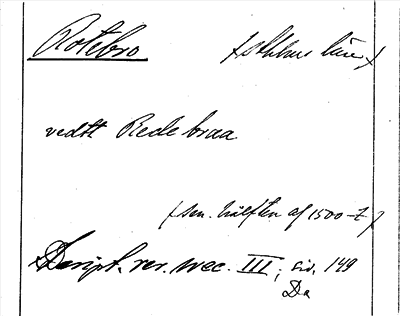 Rotebro (Sthlms län)
vedtt Redebraa
(sen. hälften af 1500-t)
Script. rer. svec. III, sid. 149
Da